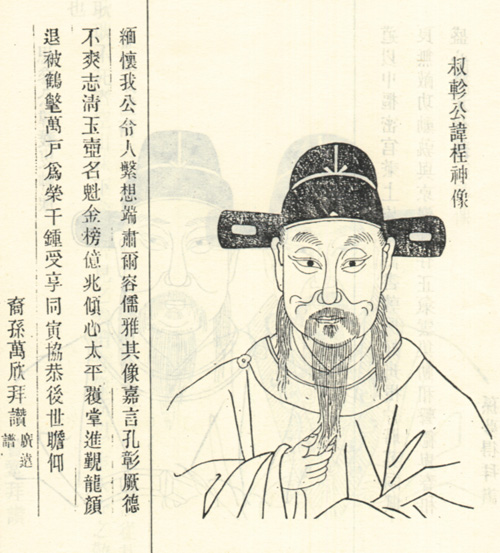 叔軫公諱桯神像
緬懷我公令人繫想端肅爾容儒雅其像嘉言孔彰厥德
不爽志清玉壺名魁金榜億兆傾心太平覆掌進覲龍顏
退被鶴氅萬戶爲榮千鍾受享同寅協恭後世瞻仰
裔孫萬欣拜讚
廣逵譜